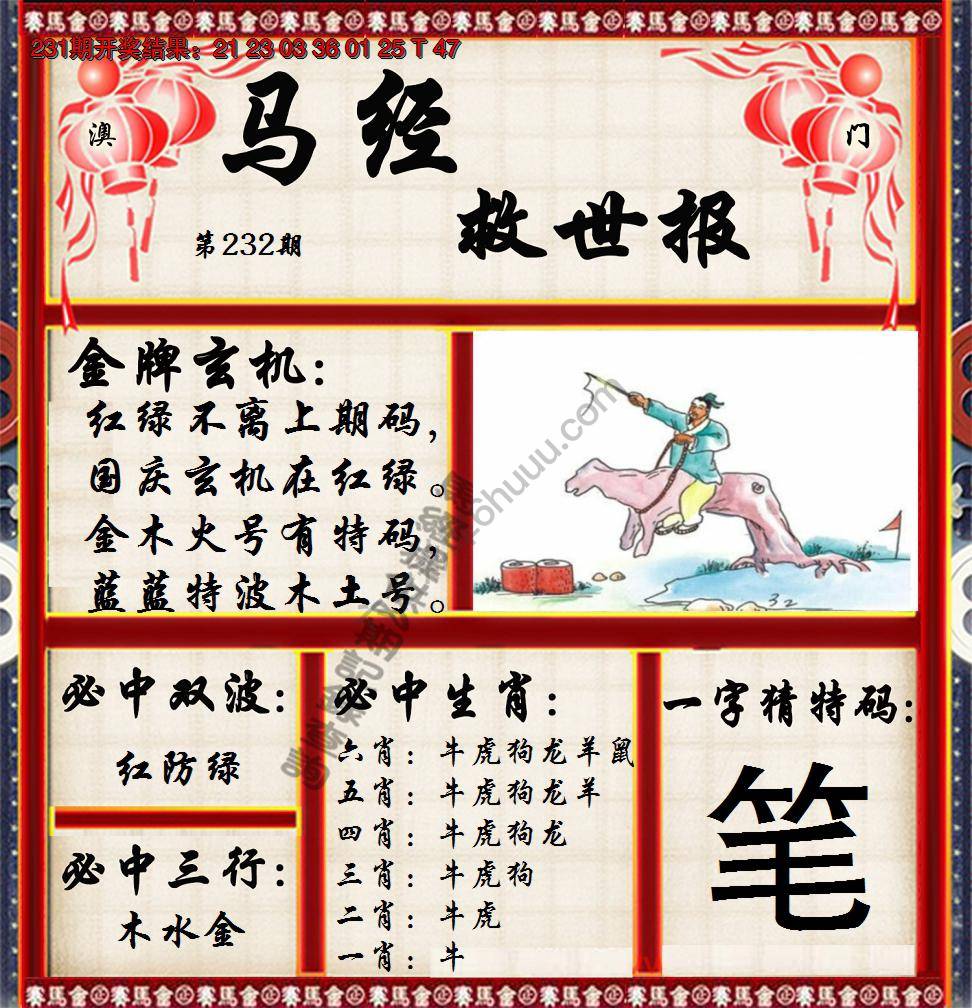 赛馬會
231期开奖结果：21 23 03 36 01 25 T 47
澳 门
马经
救世报
第232期
金牌玄机：
红绿不离上期码，
国庆玄机在红绿。
金木火号有特码，
蓝蓝特波木土号。
32
必中双波：
红防绿
必中三行：
木水金
必中生肖：
六肖：牛虎狗龙羊鼠
五肖：牛虎狗龙羊
四肖：牛虎狗龙
三肖：牛虎狗
二肖：牛虎
一肖：牛
一字猜特码：
笔